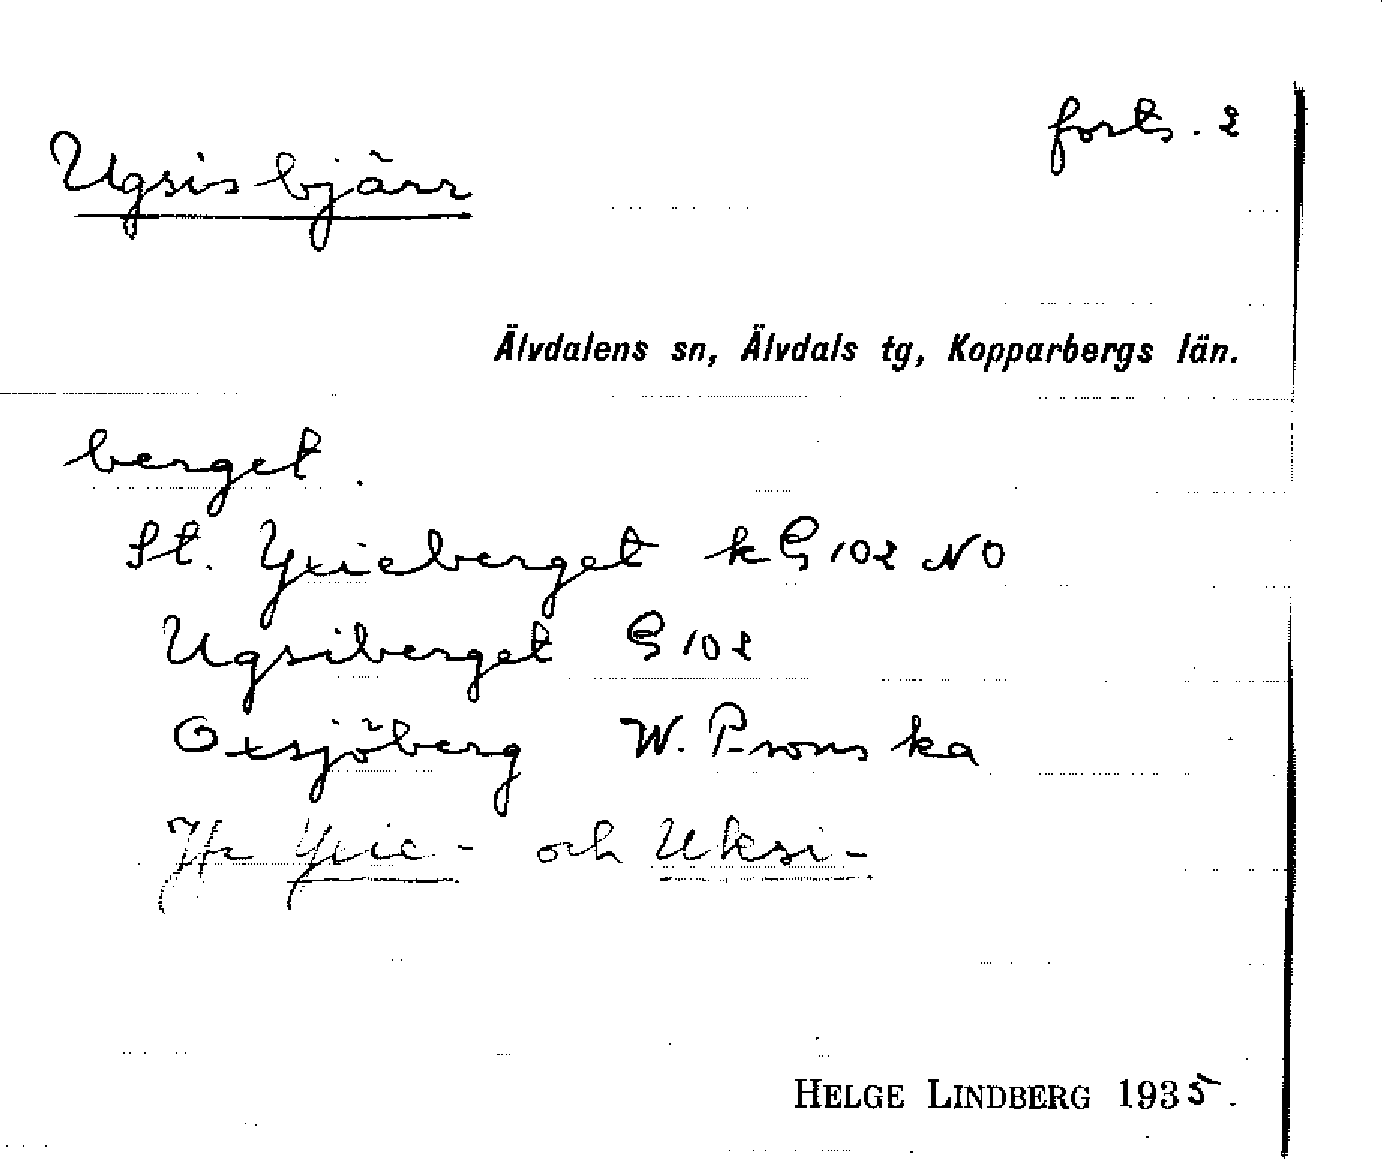 forts. 2
Ugsisbjärr
Älvdalens sn, Älvdals tg, Kopparbergs län.
berget.
St. Yxieberget k G 102 NO
Ugsiberget G 102
Oxsjöberg W.
Jfr Yxie- och Uksi-
HELGE LINDBERG 1935.